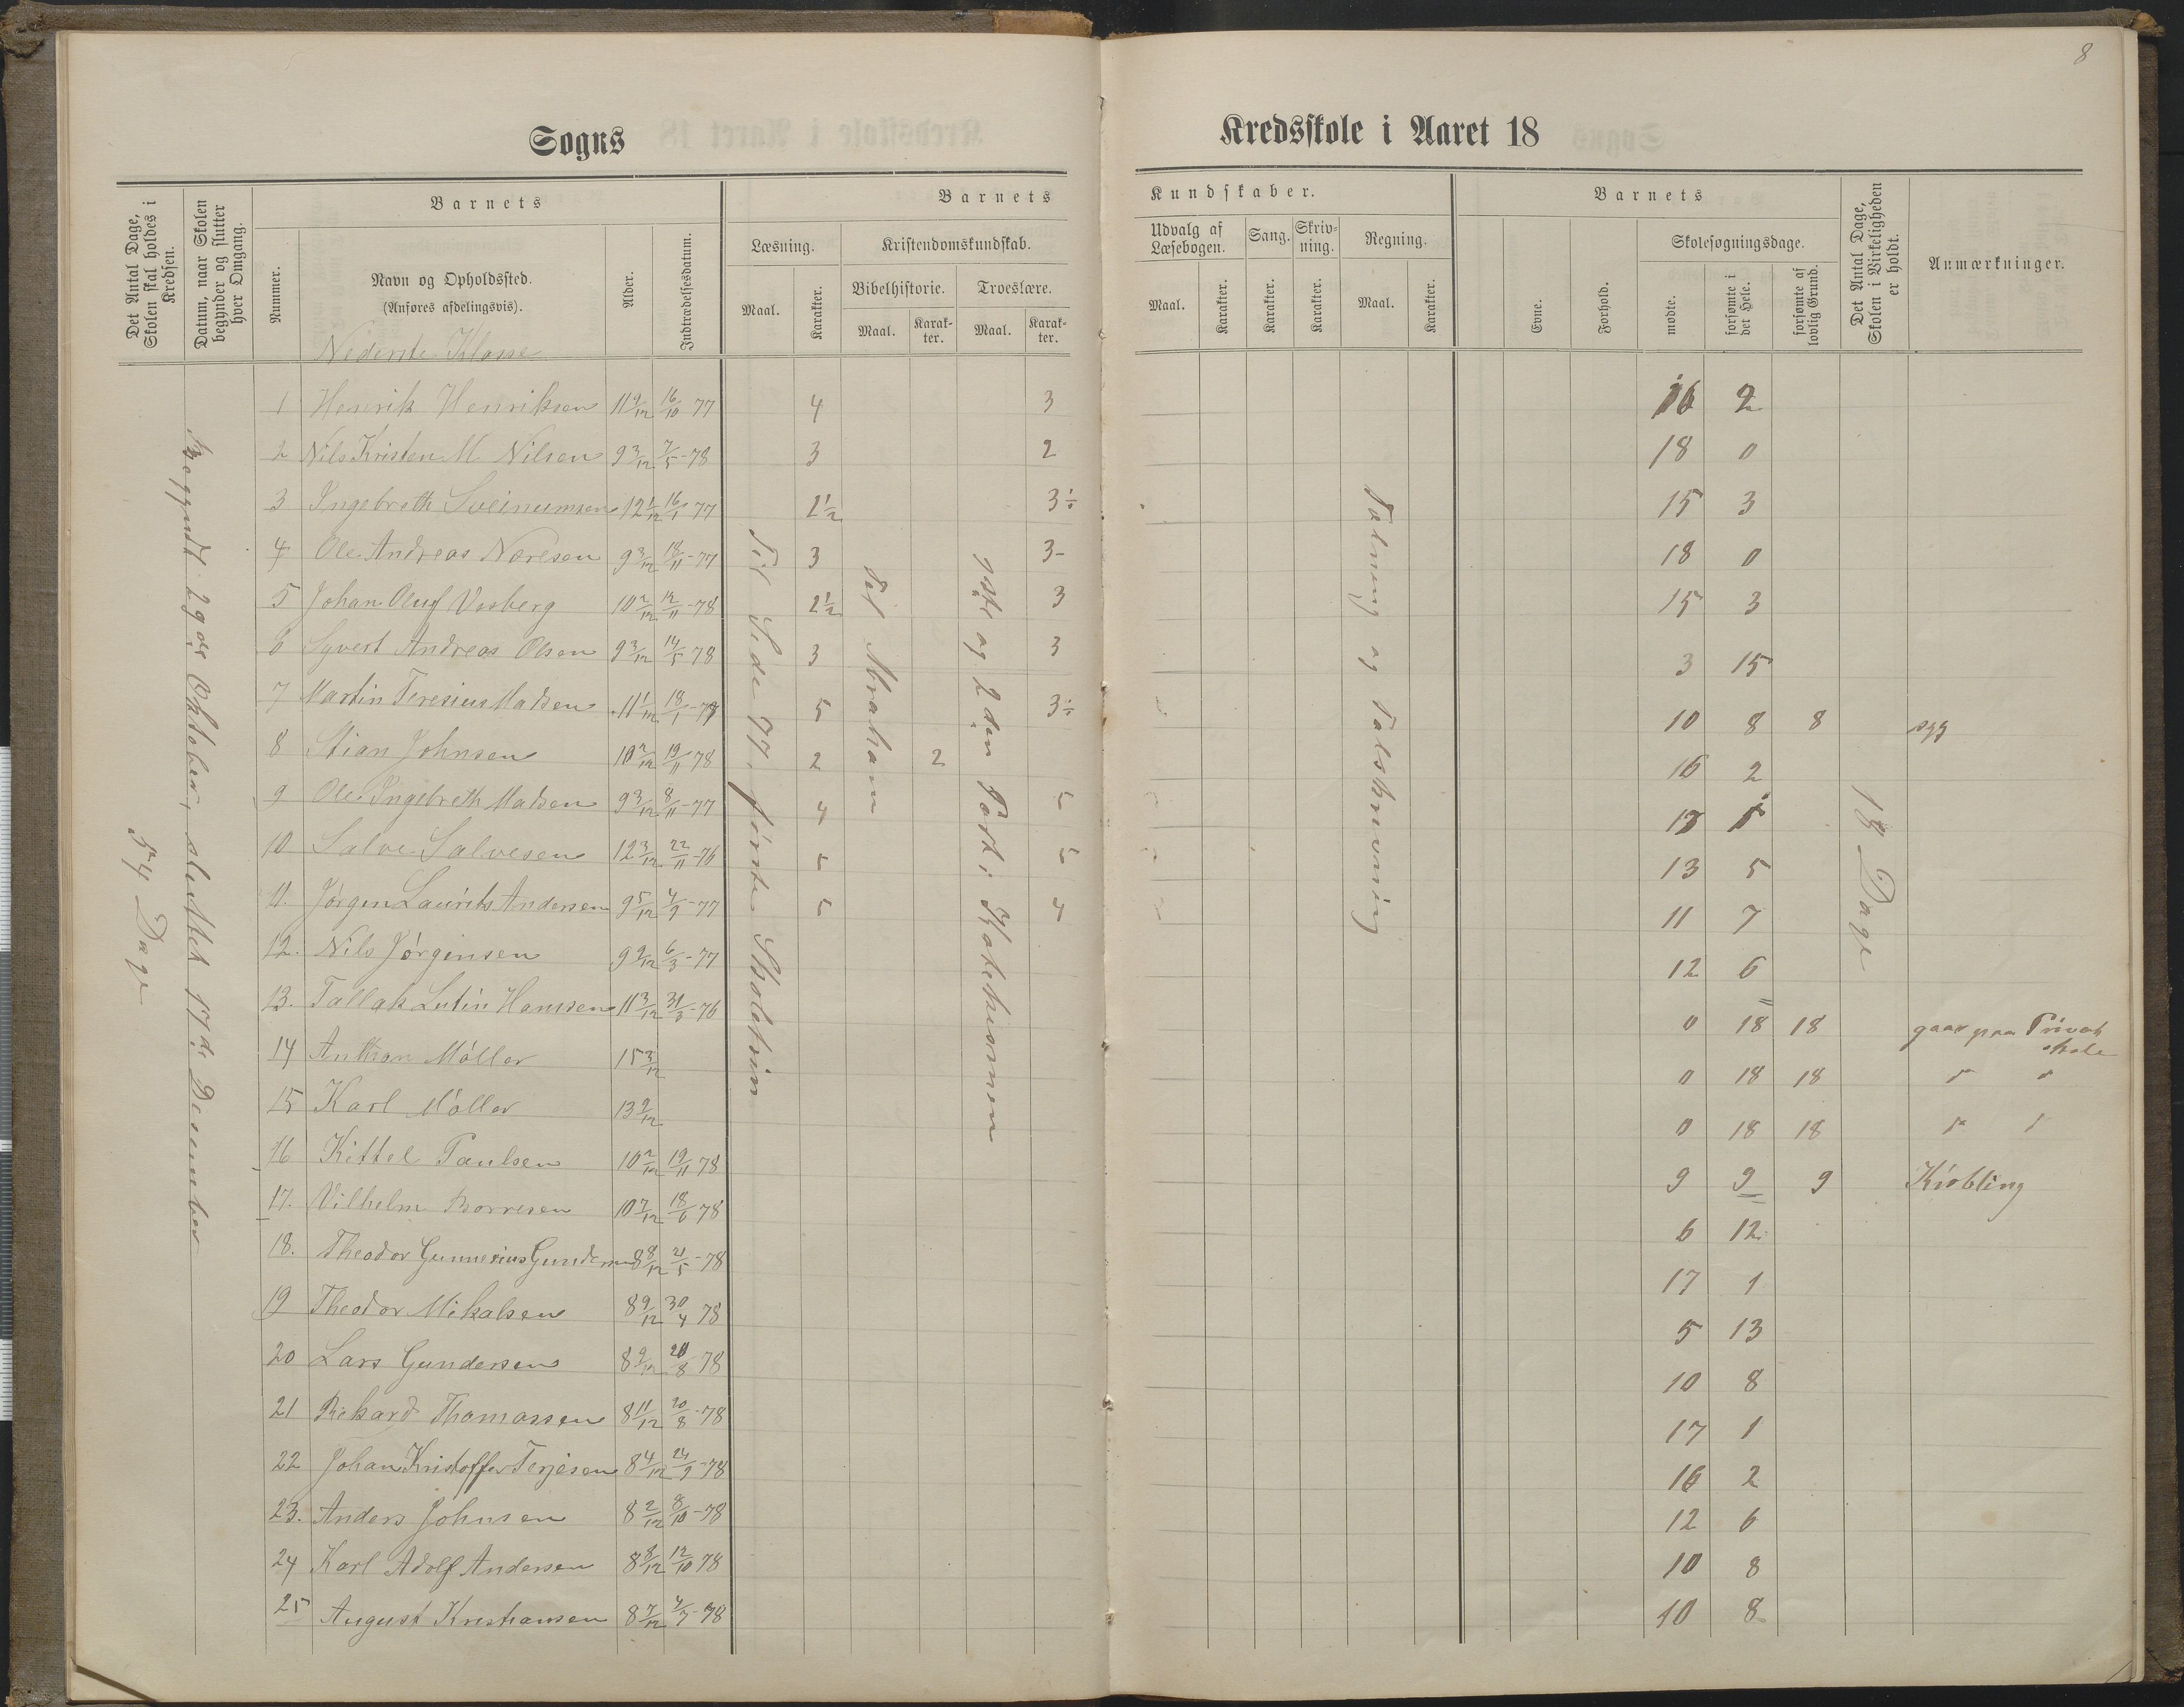 8
Sogns
Kredsskole i Aaret 18
Det Antal Dage, Skolen skal holdes i Kredsen.
Datum, naar Skolen begynder og slutter hver Omgang.
Barnets
Nummer.
Navn og Opholdssted.
(Anføres afdelingsvis).
Alder.
Indtrædelsesdatum.
Barnets
Læsning.
Maal.
Karakter.
Kristendomskundskab.
Bibelhistorie.
Maal.
Karak-
ter.
Troeslære.
Maal.
Karak-
ter.
Kundskaber.
Udvalg af
Læsebogen.
Maal.
Karakter.
Sang.
Karakter.
Skriv-
ning.
Karakter.
Regning.
Maal.
Karakter.
Barnets
Evne.
Forhold.
Skolesøgningsdage.
mødte.
forsømte i det Hele.
forsømte af lovlig Grund.
Det Antal Dage, Skolen i Virkeligheden er holdt.
Anmærkninger.
54 Dage
Begyndt 29de Oktober, sluttet 17de Desember
Nederste Klasse
Til Side 77. første Skoletrin
Til Abraham
1ste og 2den Part i Katekismen
Talning og Talskrivning
18 Dage
1 Henrik Henriksen 11 9/12 16/10 77 4 3 16 2
2 Nils Kristen M. Nilsen 9 3/12 7/5-78 3 2 18 0
3 Ingebreth Sveinumsen 12 1/12 16/1 77 2 1/2 3÷ 15 3
4 Ole Andreas Næresen 9 3/12 18/11-77 3 3- 18 0
5 Johan Oluf Vosberg 10 2/12 12/11-78 2 1/2 3 15 3
6 Syvert Andreas Olsen 9 3/12 14/5 78 3 3 3 15
7 Martin Teresius Madsen 11 1/12 18/1-77 5 3÷ 10 8 8 syg
8 Stian Johnsen 10 2/12 19/11 78 2 2 16 2
9 Ole Ingebreth Madsen 9 3/12 8/11-77 4 5 17 1
10 Salve Salvesen 12 3/12 22/11-76 5 5 13 5
11. Jørgen Laurits Andersen 9 5/12 4/9-77 5 4 11 7
12. Nils Jørginsen 9 9/12 6/3-77 12 6
13. Tallak Lutin Hansen 11 3/12 31/3-76 0 18 18 gaar paa Privat
skole
14 Anthon Møller 15 3/12 0 18 18 " "
15 Karl Møller 13 9/12 0 18 18 " "
16 Kittel Paulsen 10 2/12 19/11 78 9 9 9 Kiøbling
17. Vilhelm Borresen 10 7/12 18/6 78 6 12
18. Theodor Gunnerius Gundersen 8 8/12 21/5-78 17 1
19 Theodor Mikalsen 8 9/12 30/4 78 5 13
20 Lars Gundersen 8 9/12 20/8-78 10 8
21 Rikard Thomassen 8 11/12 20/8-78 17 1
22 Johan Kristoffer Terjesen 8 4/12 24/9-78 16 2
23. Anders Johnsen 8 2/12 8/10-78 12 6
24 Karl Adolf Andersen 8 8/12 12/10 78 10 8
25 August Kristiansen 8 7/12 4/7-78 10 8